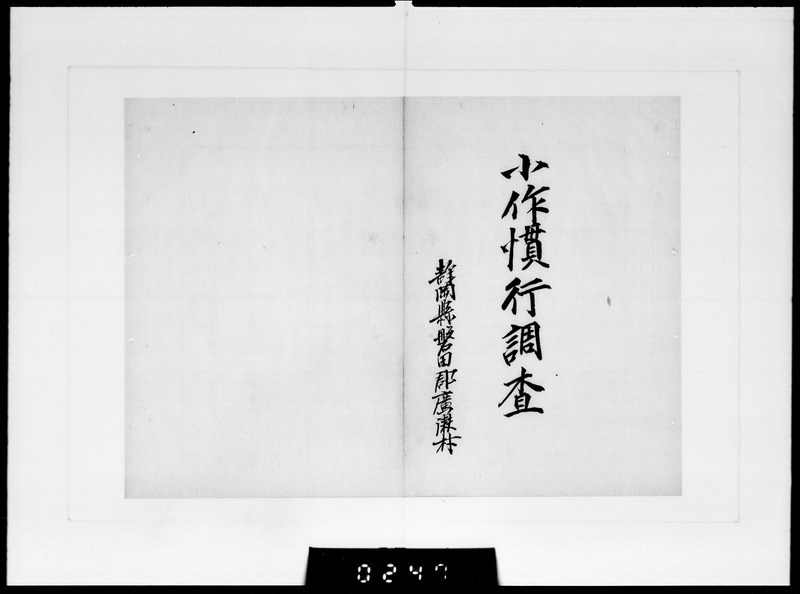 小作慣行調査
靜岡縣磐田郡廣瀬村
0247